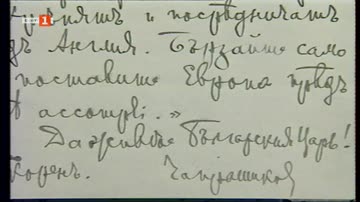 1
и посрѣдничатъ
Англия. Бързайте само
поставите Европа прѣдъ
accompli. »
Да живѣе Българския Царь!
Чапрашиков